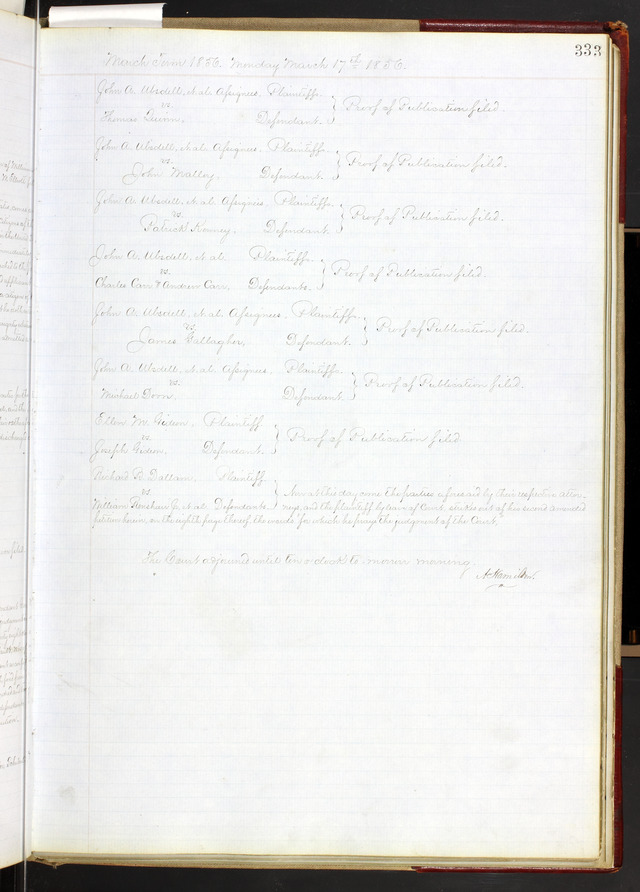 333
March Term 1856. Monday March 17th 1856.
John A. Ubsdell, et al. Assignees, Plaintiffs.
vs. Proof of Publication filed.
Thomas Defendant.
John A. Ubsdell, et al. Assignees, Plaintiffs.
vs. Proof of Publication filed.
John Malloy. Defendant.
John A. Ubsdell, et al. Assignees, Plaintiffs.
vs. Proof of Publication filed.
Patrick Kenney. Defendant.
John A. Ubsdell, et al. Plaintiffs.
vs. Proof of Publication filed.
Charles Carr & Andrew Carr, Defendants.
John A. Ubsdell, et al. Assignees, Plaintiffs.
vs. Proof of Publication filed.
James Gallagher, Defendant.
John A. Ubsdell, et al. Assignees, Plaintiffs.
vs. Proof of Publication filed.
Michael Defendant.
Ellen M. Plaintiff
vs. Proof of Publication filed
Joseph Defendant.
Richard B. Dallam, Plaintiff
vs Now at this day come the parties aforesaid by their respective attor-
William Renshaw Jr. et al. Defendants. neys and the plaintiff by leave of Court, strikes out of his second amended
petition herein, on the eighth page thereof the words for which he prays the judgment of the Court.
The Court adjourned until ten o'clock to morrow morning.
A. Hamilton.